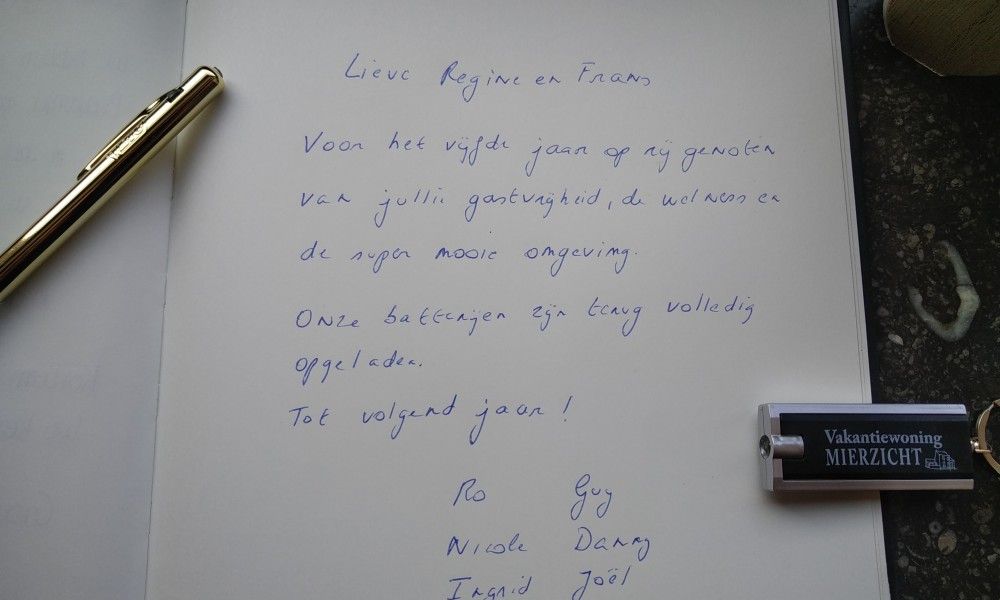 Lieve Regine en Frans
Voor het vijfde jaar op rij genoten
van jullie gastvrijheid, de welness en
de super mooie omgeving.
Onze batterijen zijn terug volledig
opgeladen.
Tot volgend jaar !
Ro Guy
Nicole Danny
Ingrid Joël
Vakantiewoning
MIERZICHT